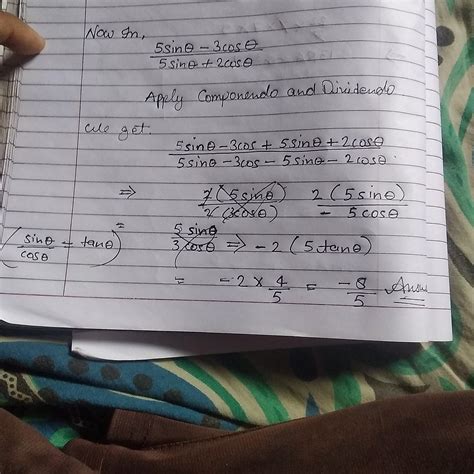 Now In,
5sinθ - 3cosθ
5sinθ + 2cosθ
Apply Componendo and Dividendo
We get:
5sinθ - 3cos + 5sinθ + 2cosθ
5sinθ - 3cos - 5sinθ - 2cosθ.
⇒ 2(5sinθ) 2(5sinθ)
2(3cosθ) - 5cosθ
(sinθ/cosθ = tanθ) = 5 sinθ/3 cosθ ⇒ -2(5tanθ)
= -2 × 4/5 = -8/5